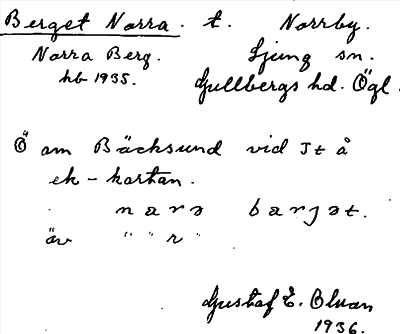 Berget Norra. t. Norrby.
Norra Berg. Ljung sn.
hb 1935. Gullbergs hd. Ögl.
Ö om Bäcksund vid It å
ek-kartan.
narə barjət.
äv " " r "
Gustaf E. Olvan
1936.